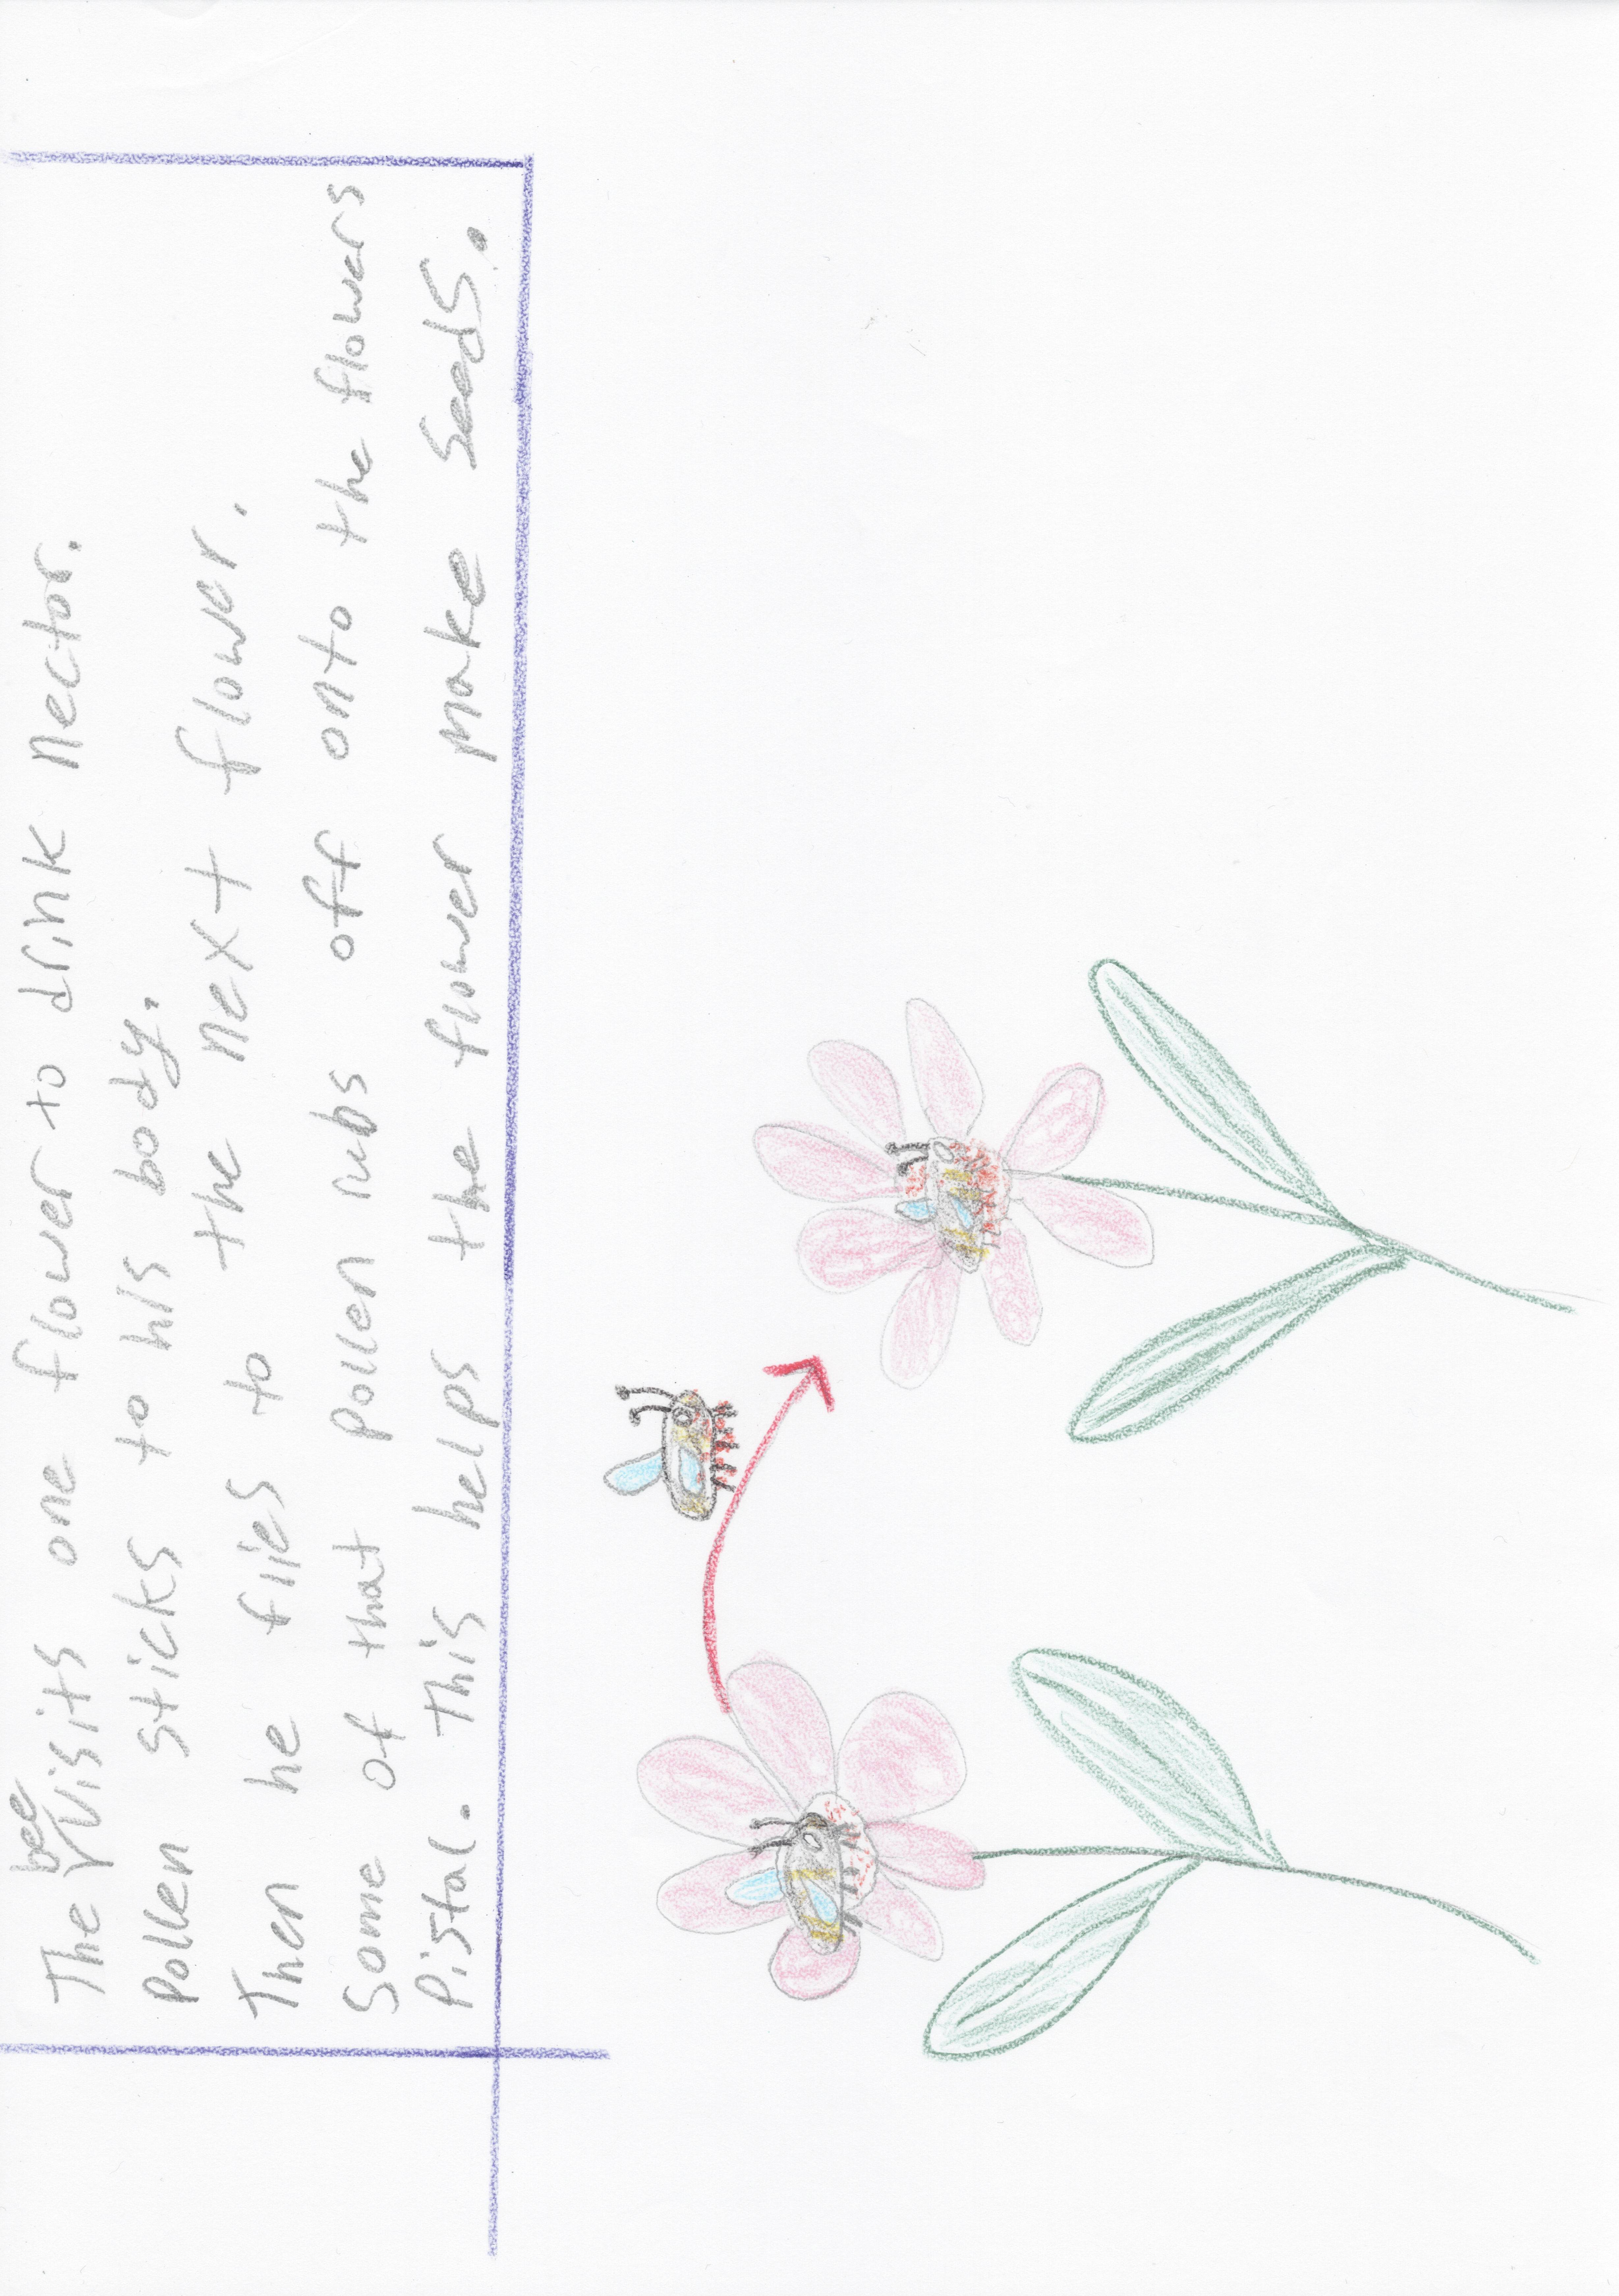 The bee visits one flower to drink nector.
Pollen sticks to his body.
Then he flies to the next flower.
Some of that pollen rubs off onto the flowers
Pistal. This helps the flower make seeds.